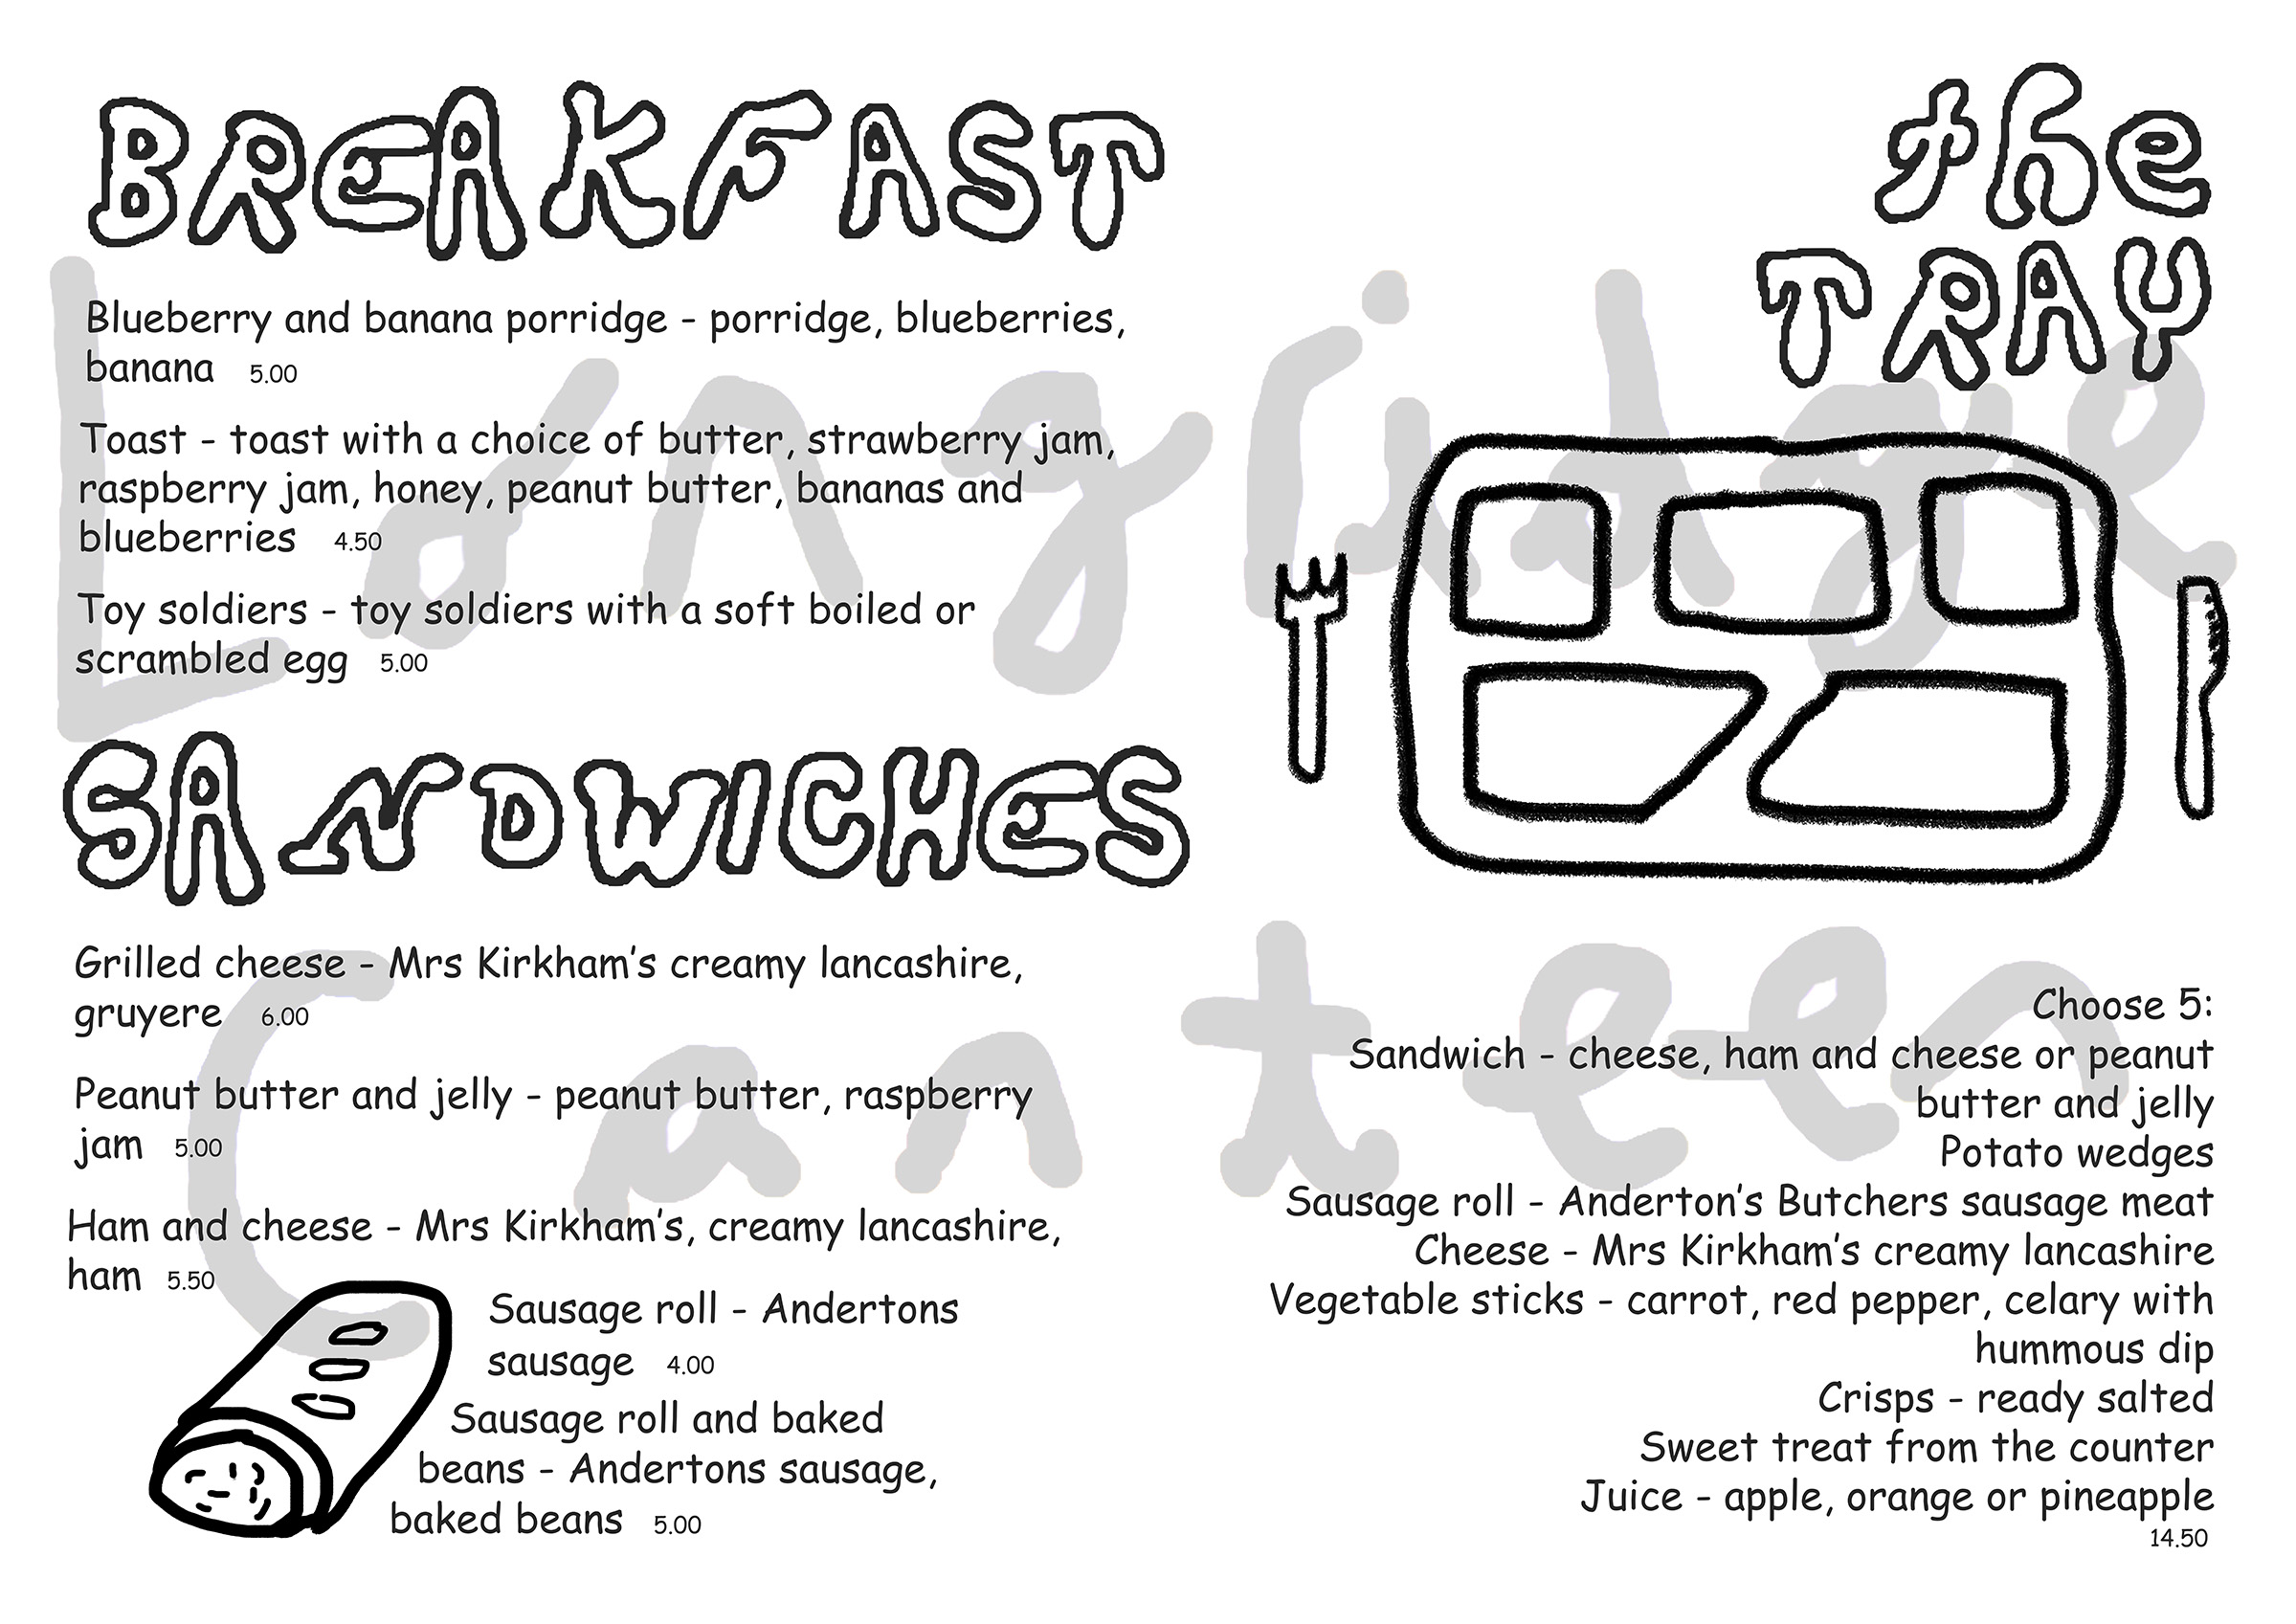 BREAKFAST
Blueberry and banana porridge - porridge, blueberries,
banana 5.00
Toast - toast with a choice of butter, strawberry jam,
raspberry jam, honey, peanut butter, bananas and
blueberries 4.50
Toy soldiers - toy soldiers with a soft boiled or
scrambled egg 5.00
SANDWICHES
Grilled cheese - Mrs Kirkham's creamy lancashire,
gruyere 6.00
Peanut butter and jelly - peanut butter, raspberry
jam 5.00
Ham and cheese - Mrs Kirkham's, creamy lancashire,
ham 5.50
Sausage roll - Andertons
sausage 4.00
Sausage roll and baked
beans - Andertons sausage,
baked beans 5.00
the
TRAY
Choose 5:
Sandwich - cheese, ham and cheese or peanut
butter and jelly
Potato wedges
Sausage roll - Anderton's Butchers sausage meat
Cheese - Mrs Kirkham's creamy lancashire
Vegetable sticks - carrot, red pepper, celary with
hummous dip
Crisps - ready salted
Sweet treat from the counter
Juice - apple, orange or pineapple
14.50
Longridge
Canteen